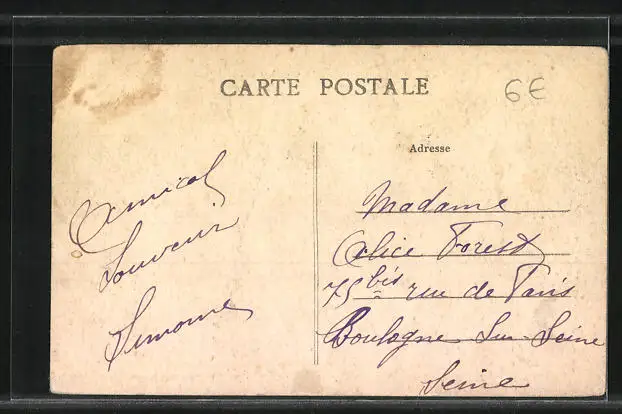 CARTE POSTALE
6€
Adresse
Amical
Souvenir
Simone
Madame
Alice Forest
75 bis rue de Paris
Boulogne Sur Seine
Seine